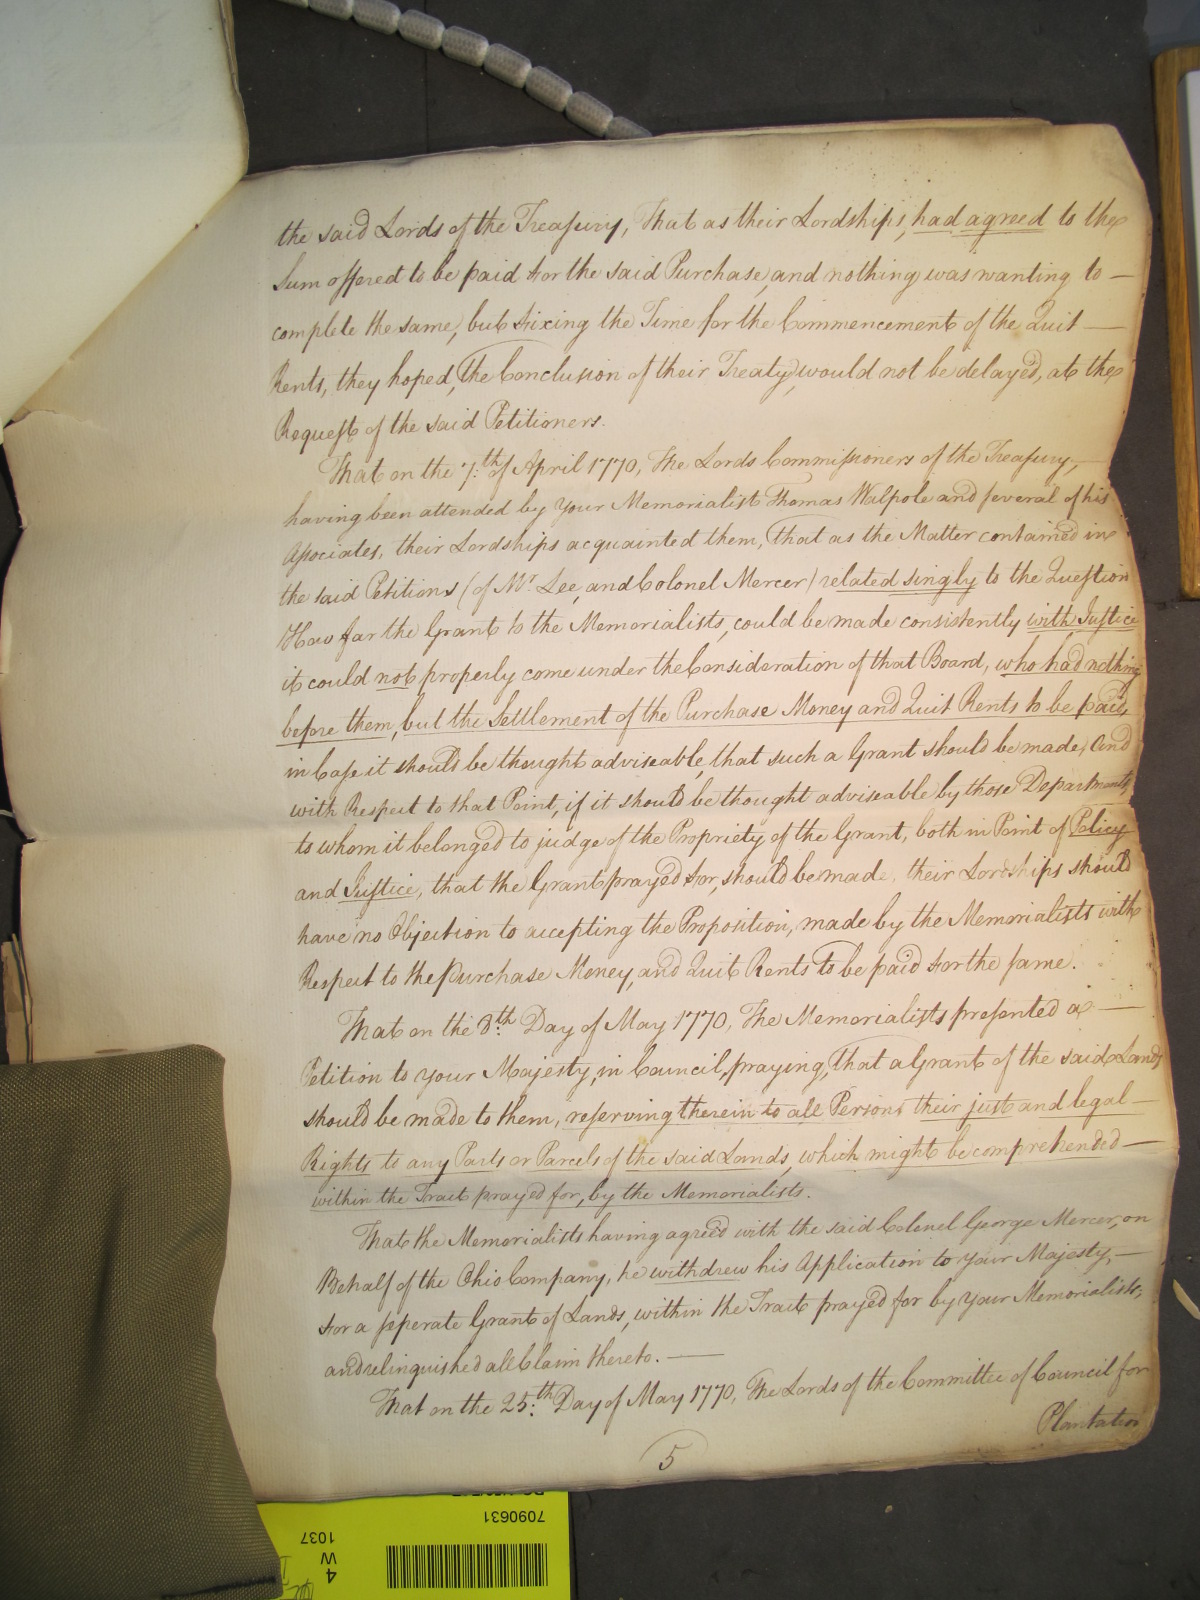 the said Lords of the Treasury, That as their Lordships, had agreed to the
Sum offered to be paid for the said Purchase, and nothing was wanting to —
complete the same, but fixing the Time for the Commencement of the Quit —
Rents, they hoped, the Conclusion of their Treaty, would not be delayed, at the
Request of the said Petitioners.
That on the 7:th of April 1770, The Lords Commissioners of the Treasury, —
having been attended by your Memorialist Thomas Walpole and several of his
Associates, their Lordships acquainted them, that as the Matter contained in
the said Petitions (of Mr. Lee, and Colonel Mercer) related singly to the Question
How far the Grant to the Memorialists, could be made consistently with Justice
it could not properly come under the Consideration of that Board, who had nothing
before them, but the Settlement of the Purchase Money and Quit Rents to be paid
in Case it should be thought adviseable, that such a Grant should be made; And
with Respect to that Point, if it should be thought adviseable by those Departments,
to whom it belonged to judge of the Propriety of the Grant, both in Point of Policy
and Justice, that the Grant prayed for, should be made, their Lordships should
have no Objection to accepting the Proposition, made by the Memorialists with
Respect to the Purchase Money, and Quit Rents to be paid for the same.
That on the 8:th Day of May 1770, The Memorialists presented a —
Petition to your Majesty, in Council, praying, that a Grant of the said Lands
should be made to them, reserving therein to all Persons their just and legal —
Rights to any Parts or Parcels of the said Lands, which might be comprehended —
within the Tract prayed for, by the Memorialists.
That the Memorialists having agreed with the said Colonel George Mercer, on
Behalf of the Ohio Company, he withdrew his Application to your Majesty, —
for a seperate Grant of Lands, within the Tract prayed for by your Memorialists,
and relinquished all Claim thereto. —
That on the 25:th Day of May 1770, The Lords of the Committee of Council for
Plantation
5
7090631
1037
W
4